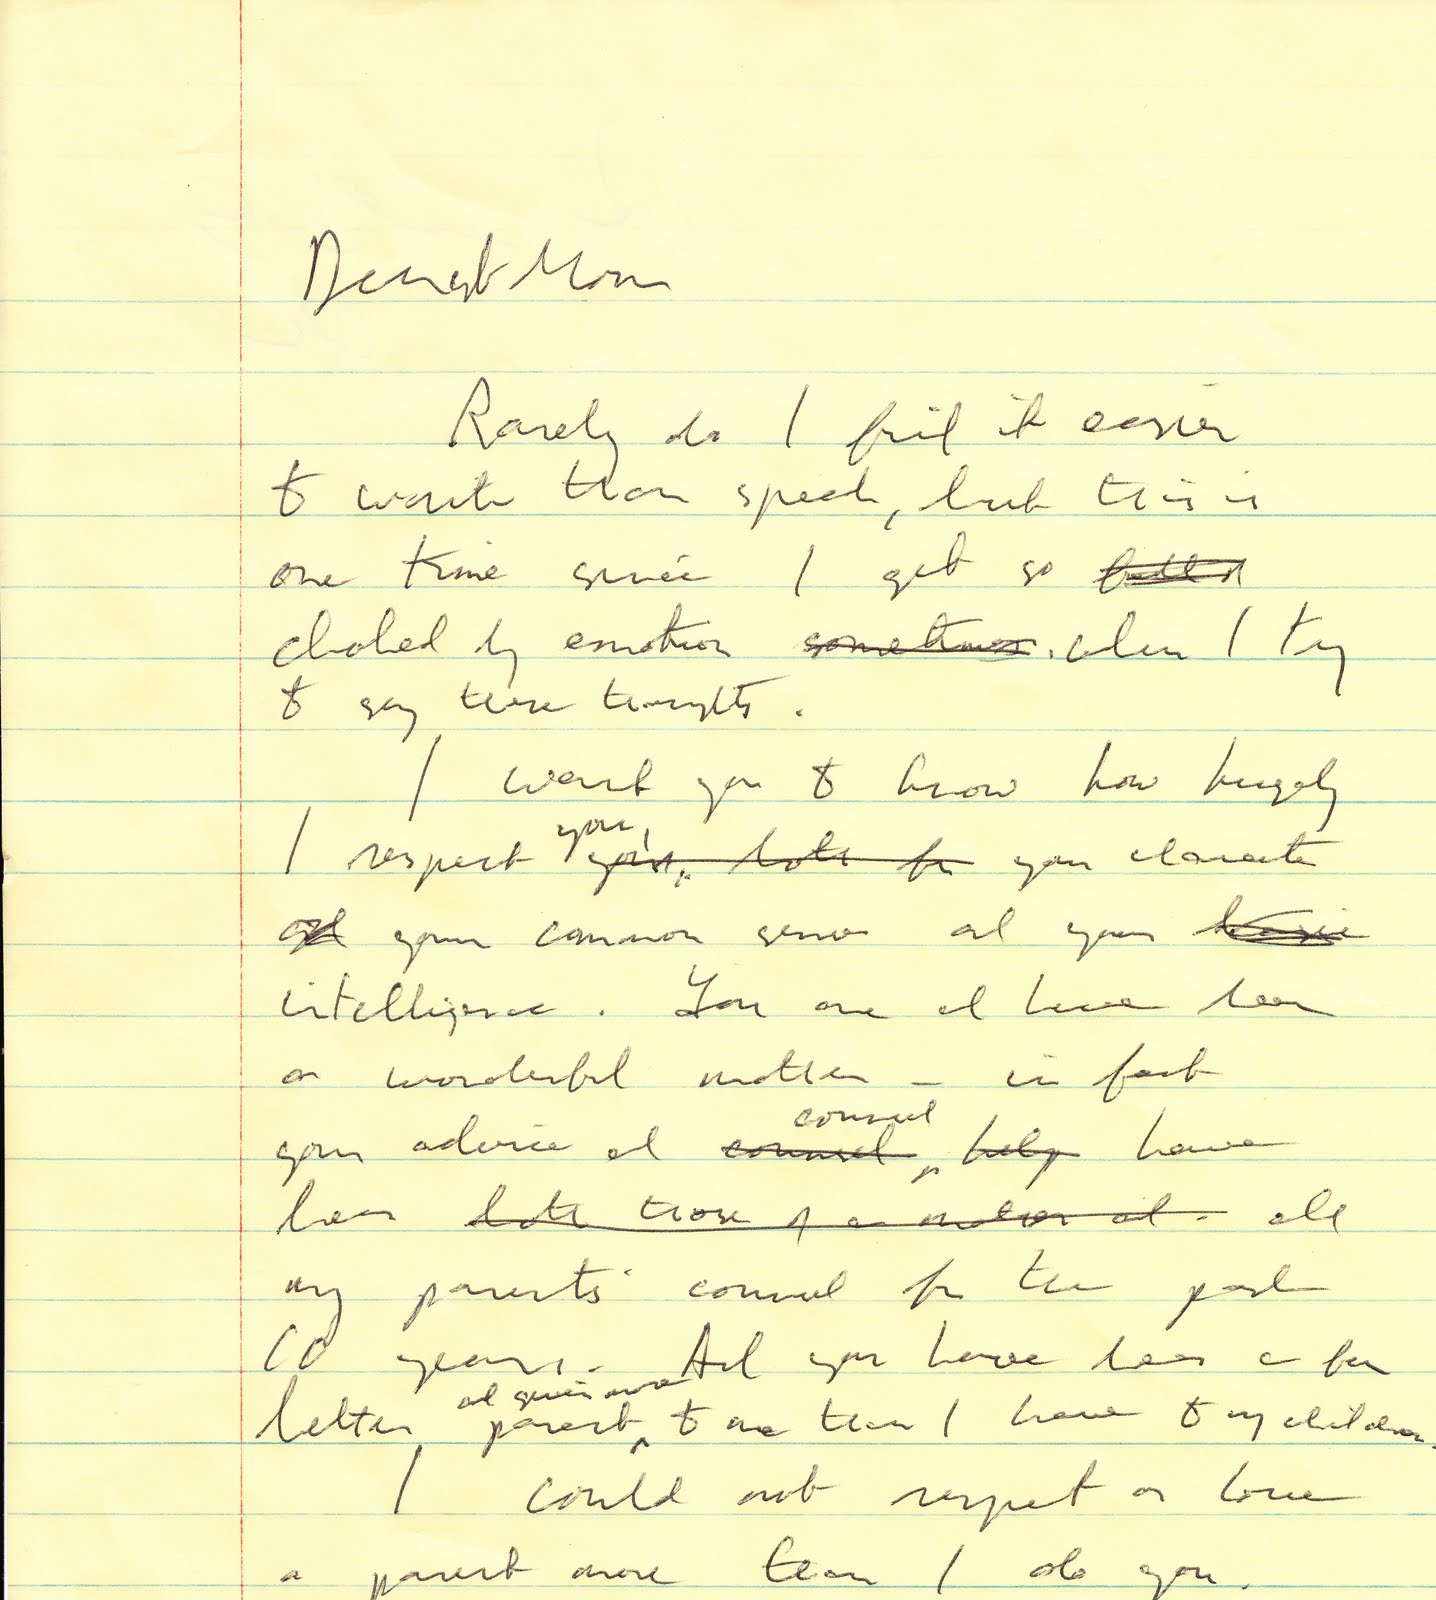 Dearest Mom
Rarely do I find it easier
to write than speak, but this is
one time since I get so
choked by emotion sometimes when I try
to say these thoughts.
I want you to know how hugely
I respect you, your, both for your character
and your common sense and your basic
intelligence. You are and have been
a wonderful mother - in fact
your advice and counsel counsel, help have
been both those of a mother and - all
my parents' counsel for the past
60 years. And you have been a far
better, parent and given more to me than I have to my children.
I could not respect or love
a parent more than I do you.